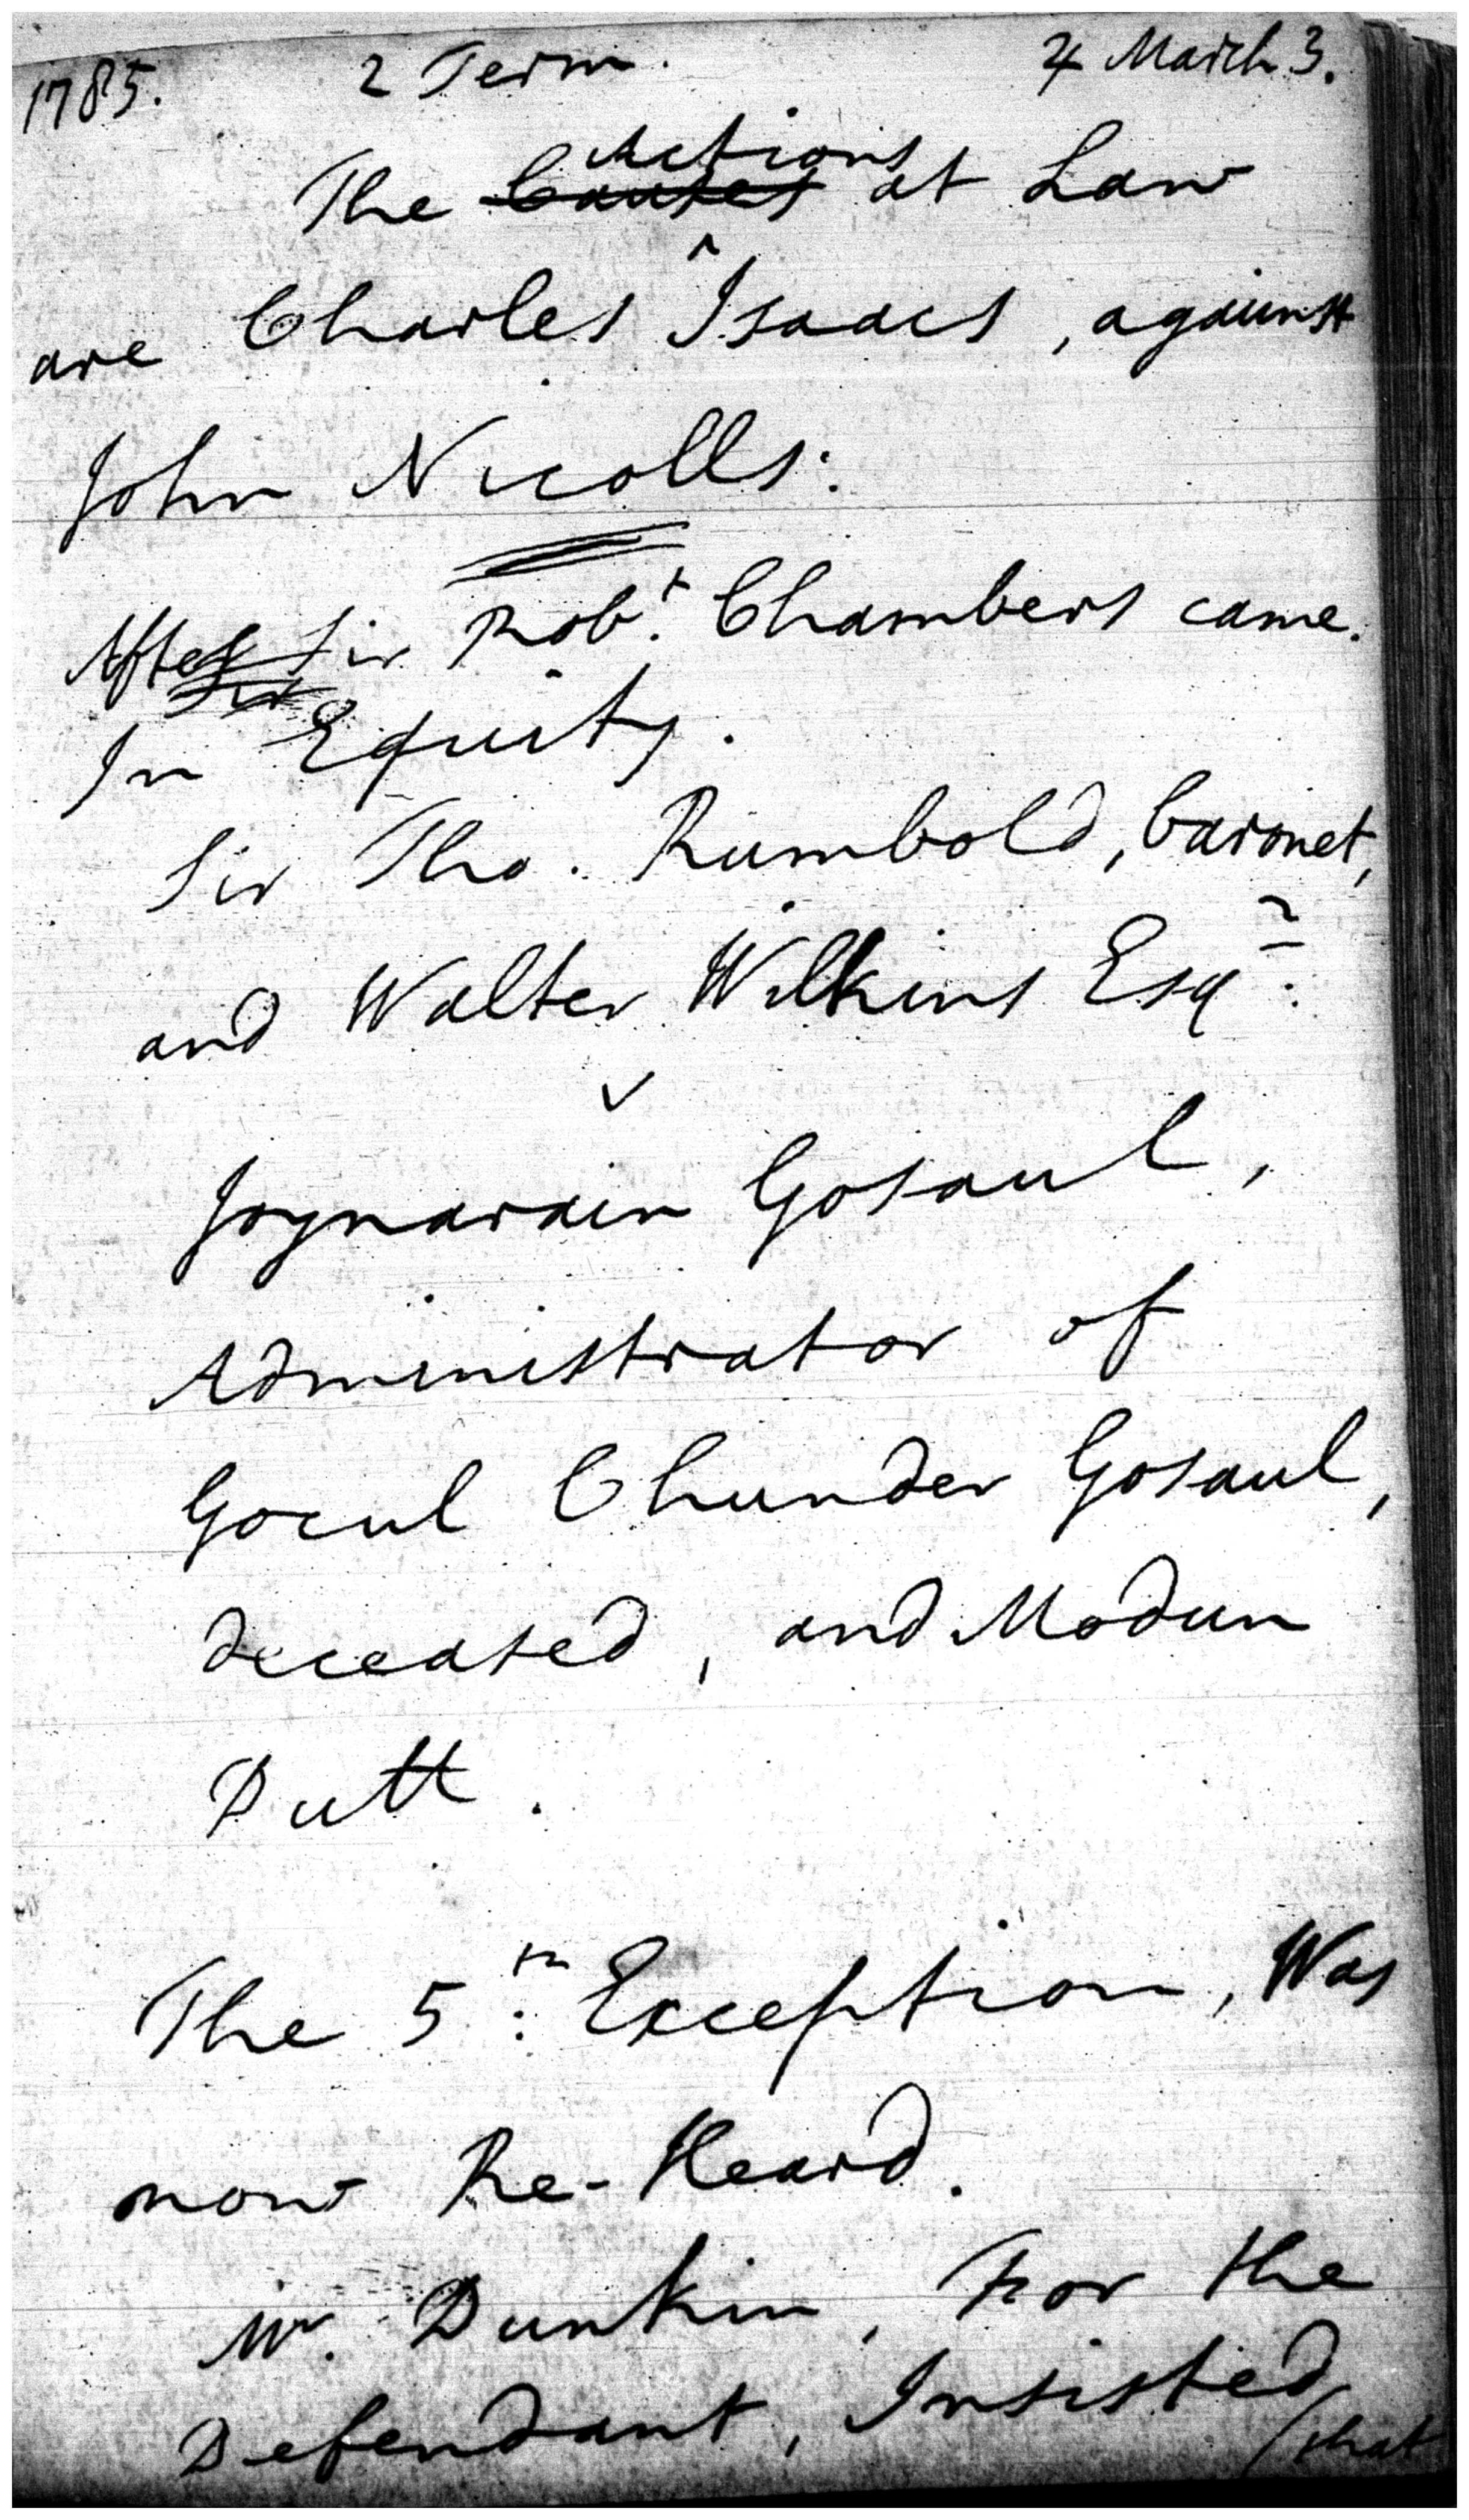 1785. 2 Term. 4 March 3.
Actions
The Causes at Law
^
are Charles Isaacs, against
John Nicolls:
After Sir Robt. Chambers came.
Sir
In Equity.
Sir Tho. Rumbold, baronet,
and Walter Wilkins Esqr:
v
Joynarain Gosaul,
Administrator of
Gocul Chunder Gosaul,
deceased, and Modun
Dutt.
The 5th: Exception, Was
now Re-Heard.
Mr. Dunkin, For the
Defendant, Insisted
(that